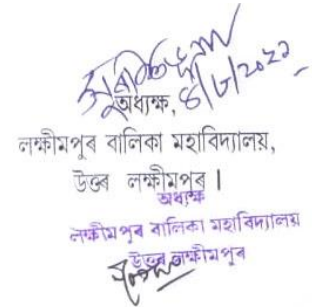 অধ্যক্ষ, ৪/৮/২০২১
লক্ষীমপুৰ বালিকা মহাবিদ্যালয়,
উত্তৰ লক্ষীমপুৰ ।
অধ্যক্ষ
লক্ষীমপুৰ বালিকা মহাবিদ্যালয়
উত্তৰ লক্ষীমপুৰ